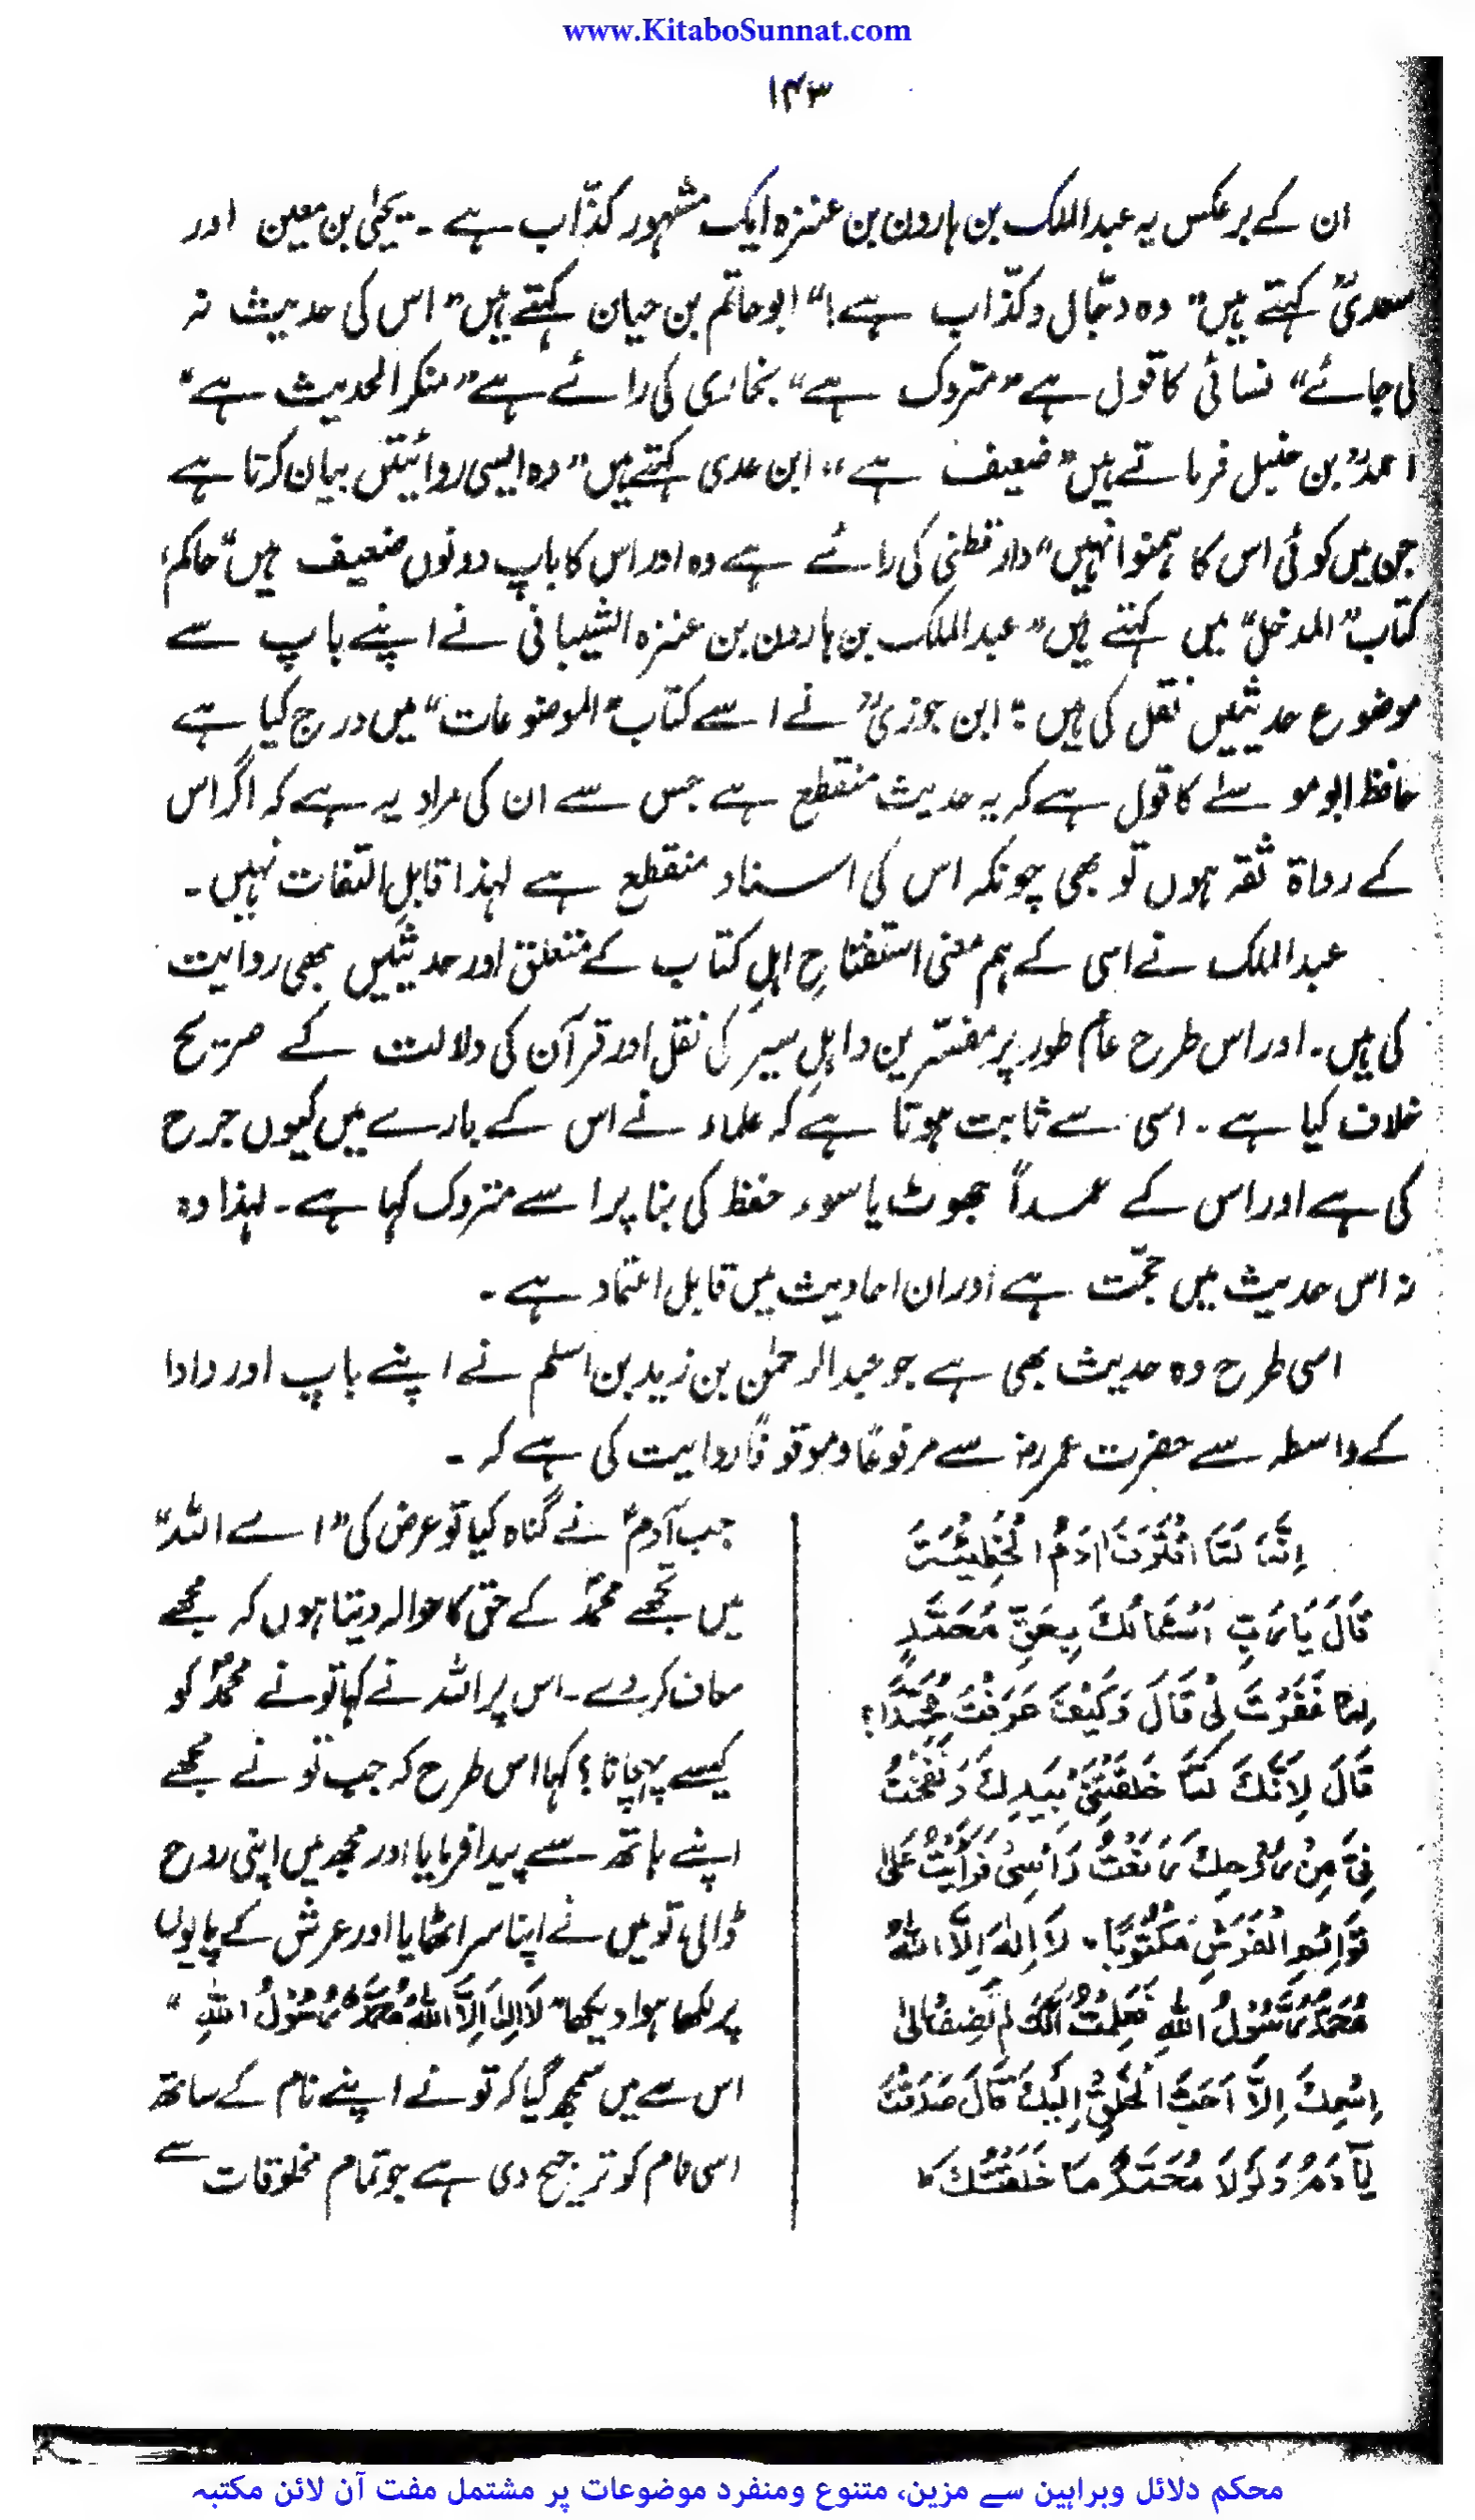 www.KitaboSunnat.com
۱۴۳
ان کے برعکس یہ عبدالملک بن ہارون بن عنزہ ایک مشہور کذّاب ہے ۔ یحییٰ بن معین اور
سعدیؒ کہتے ہیں” وہ دجّال وکذّاب ہے!“ ابوحاتم بن حیان کہتے ہیں” اس کی حدیث نہ
لی جائے“ نسائی کا قول ہے”متروک ہے“ بخاری کی رائے ہے”منکر الحدیث ہے“
احمدؒ بن حنبل فرماتے ہیں”ضعیف ہے“ ابن عدی کہتے ہیں”وہ ایسی روائیتیں بیان کرتا ہے
جن میں کوئی اس کا ہمنوا نہیں“ دارقطنی کی رائے ہے وہ اور اس کا باپ دونوں ضعیف ہیں“ حاکمؒ
کتاب”المدخل“ میں کہتے ہیں”عبدالملک بن ہارون بن عنزہ الشیبانی نے اپنے باپ سے
موضوع حدیثیں نقل کی ہیں : ابن جوزیؒ نے اسے کتاب”الموضوعات“ میں درج کیا ہے
حافظ ابو موسےٰ کا قول ہے کہ یہ حدیث منقطع ہے جس سے ان کی مراد یہ ہے کہ اگر اس
کے رواۃ ثقہ ہوں تو بھی چونکہ اس کی اسناد منقطع ہے لہذا قابلِ التفات نہیں۔
عبدالملک نے اسی کے ہم معنی استفتاحِ اہلِ کتاب کے متعلق اور حدیثیں بھی روایت
کی ہیں۔ اور اس طرح عام طور پر مفسّرین واہلِ سیَر کی نقل اور قرآن کی دلالت کے صریح
خلاف کیا ہے ۔ اسی سے ثابت ہوتا ہے کہ علماء نے اس کے بارے میں کیوں جرح
کی ہے اور اس کے عمداً جھوٹ یا سوء حفظ کی بنا پر اسے متروک کہا ہے۔ لہذا وہ
نہ اس حدیث میں حجّت ہے اور ان احادیث میں قابل اعتماد ہے ۔
اسی طرح وہ حدیث بھی ہے جو عبدالرحمٰن بن زید بن اسلم نے اپنے باپ اور دادا
کے واسطہ سے حضرت عمر رضؓ سے مرفوعًا وموقوفًا روایت کی ہے کہ ۔
اِنَّهٗ لَمَّا اقْتَرَفَ اٰدَمُ الْخَطِيْئَةَ
قَالَ يَا رَبِّ اَسْئَالُكَ بِحَقِّ مُحَمَّدٍ
لِمَا غَفَرْتَ لِيْ قَالَ وَكَيْفَ عَرَفْتَ مُحَمَّدًا؟
قَالَ لِاَنَّكَ لَمَّا خَلَقْتَنِيْ بِيَدِكَ وَنَفَخْتَ
فِيَّ مِنْ رُّوْحِكَ رَفَعْتُ رَاْسِيْ فَرَاَيْتُ عَلٰى
قَوَائِمِ الْعَرْشِ مَكْتُوْبًا۔ لَا اِلٰهَ اِلَّا اللّٰهُ
مُحَمَّدٌ رَّسُوْلُ اللّٰهِ فَعَلِمْتُ اَنَّكَ لَمْ تُضِفْ اِلٰى
اِسْمِكَ اِلَّا اَحَبَّ الْخَلْقِ اِلَيْكَ قَالَ صَدَقْتَ
يَا اٰدَمُ وَلَوْلَا مُحَمَّدٌ مَا خَلَقْتُكَ
جب آدمؑ نے گناہ کیا تو عرض کی”اے اللہ“
میں تجھے محمدؐ کے حق کا حوالہ دیتا ہوں کہ مجھے
معاف کر دے۔ اس پر اللہ نے کہا تو نے محمدؐ کو
کیسے پہچانا؟ کہا اس طرح کہ جب تو نے مجھے
اپنے ہاتھ سے پیدا فرمایا اور مجھ میں اپنی روح
ڈالی، تو میں نے اپنا سر اٹھایا اور عرش کے پایوں
پر لکھا ہوا دیکھا”لَا اِلٰهَ اِلَّا اللّٰهُ مُحَمَّدٌ رَّسُوْلُ اللّٰهِ “
اس سے میں سمجھ گیا کہ تو نے اپنے نام کے ساتھ
اسی نام کو ترجیح دی ہے جو تمام مخلوقات سے
محکم دلائل وبراہین سے مزین، متنوع ومنفرد موضوعات پر مشتمل مفت آن لائن مکتبہ